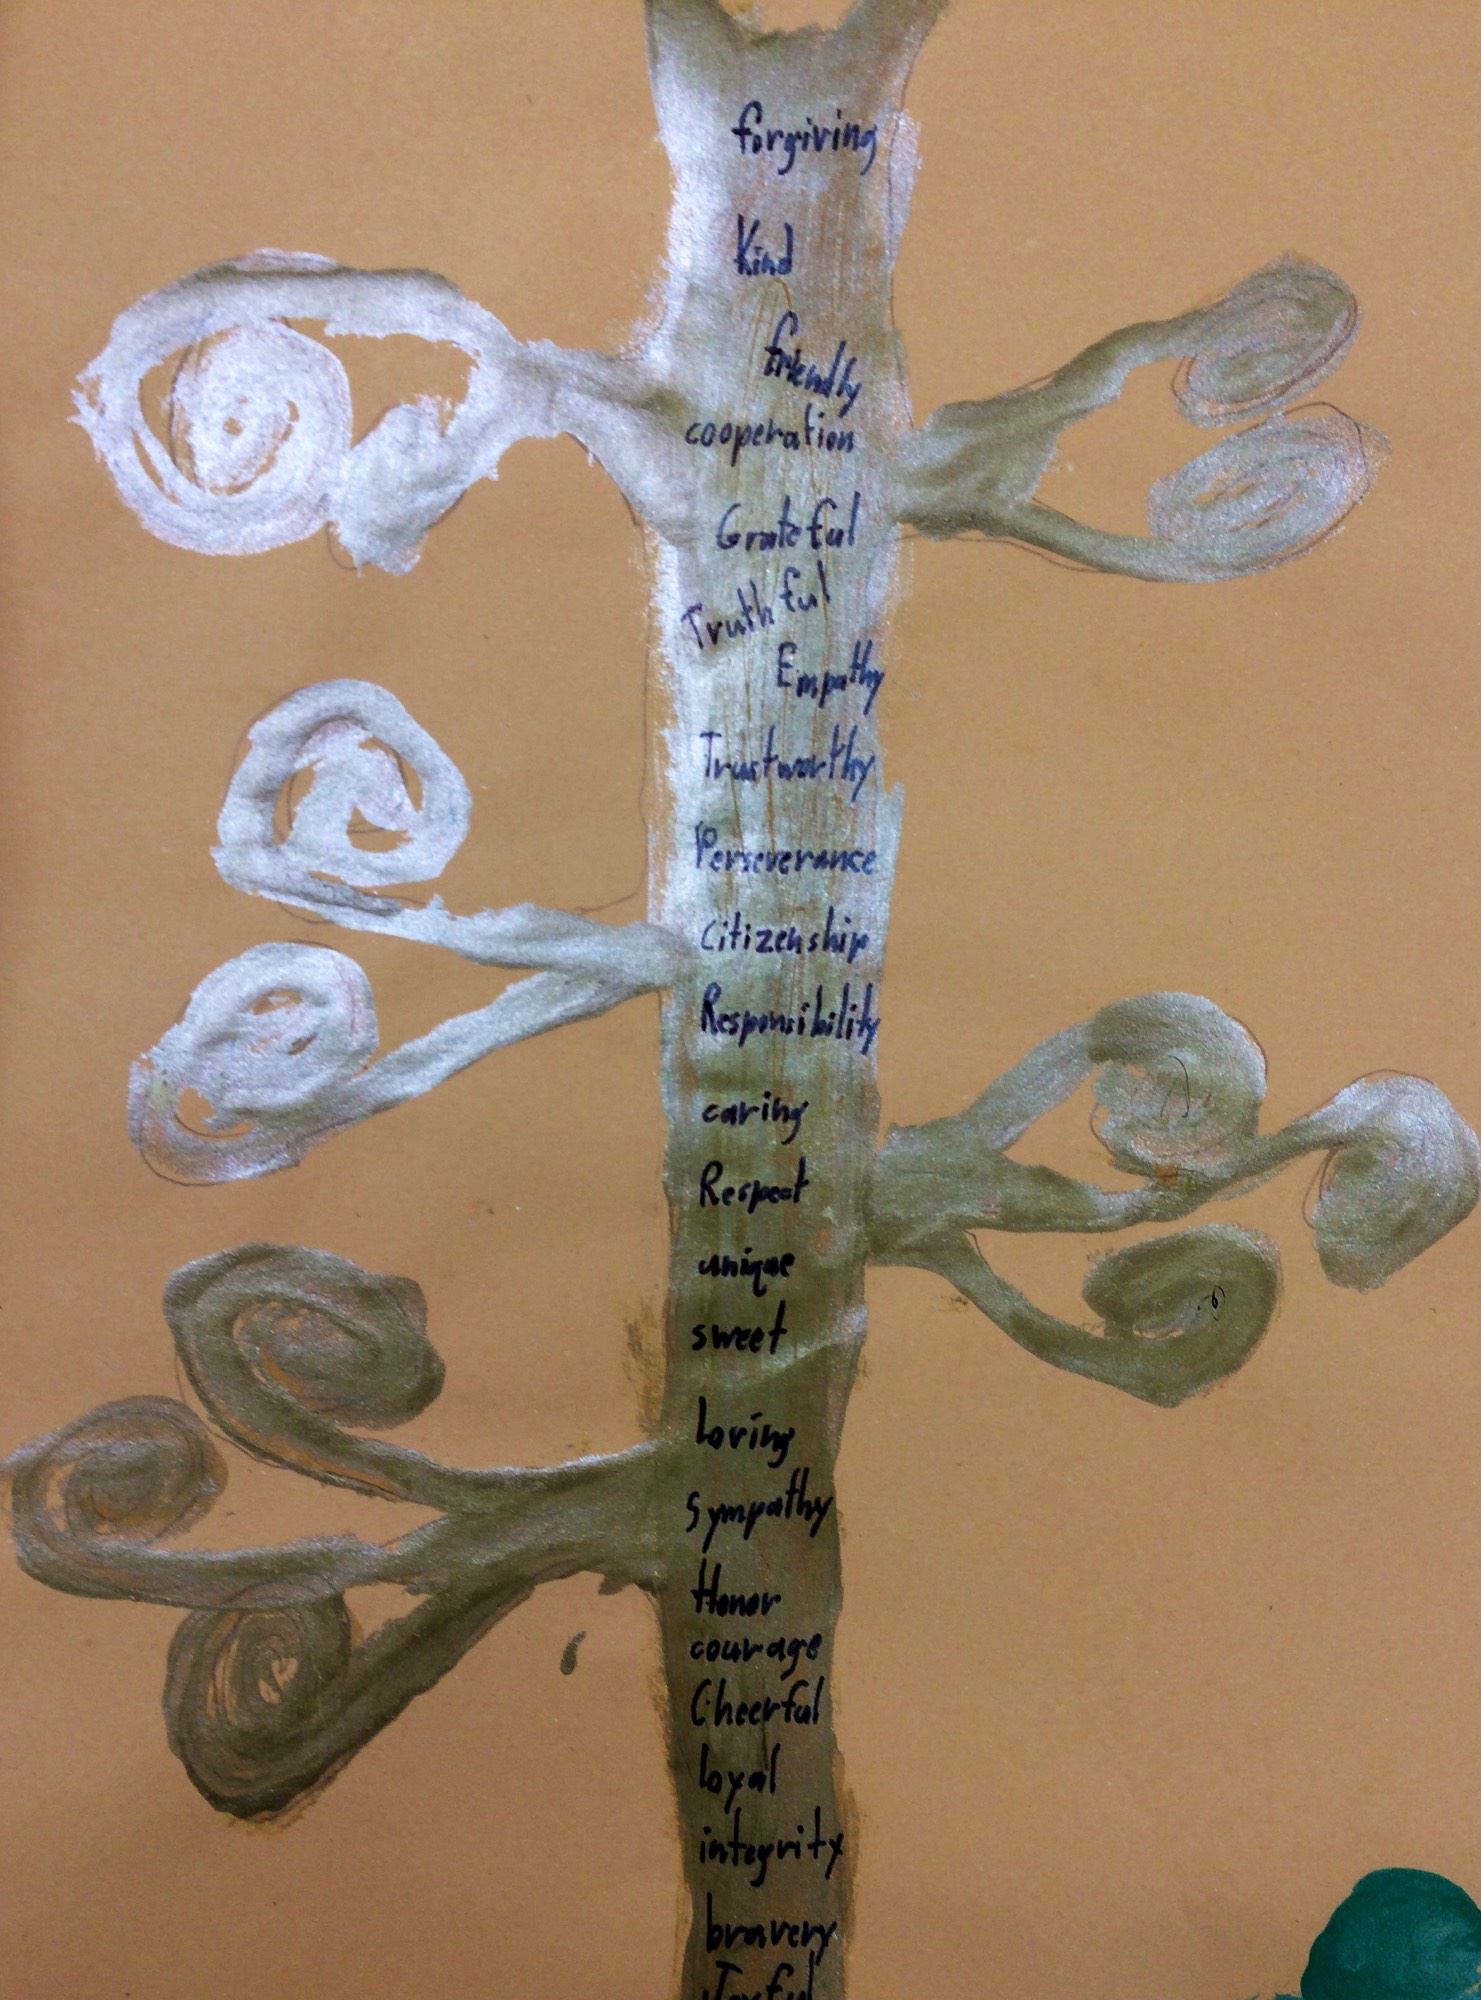 forgiving
Kind
friendly
cooperation
Grateful
Truthful
Empathy
Trustworthy
Perseverance
citizenship
Responsibility
caring
Respect
unique
sweet
loving
Sympathy
Honor
courage
Cheerful
loyal
integrity
bravery
Joyful